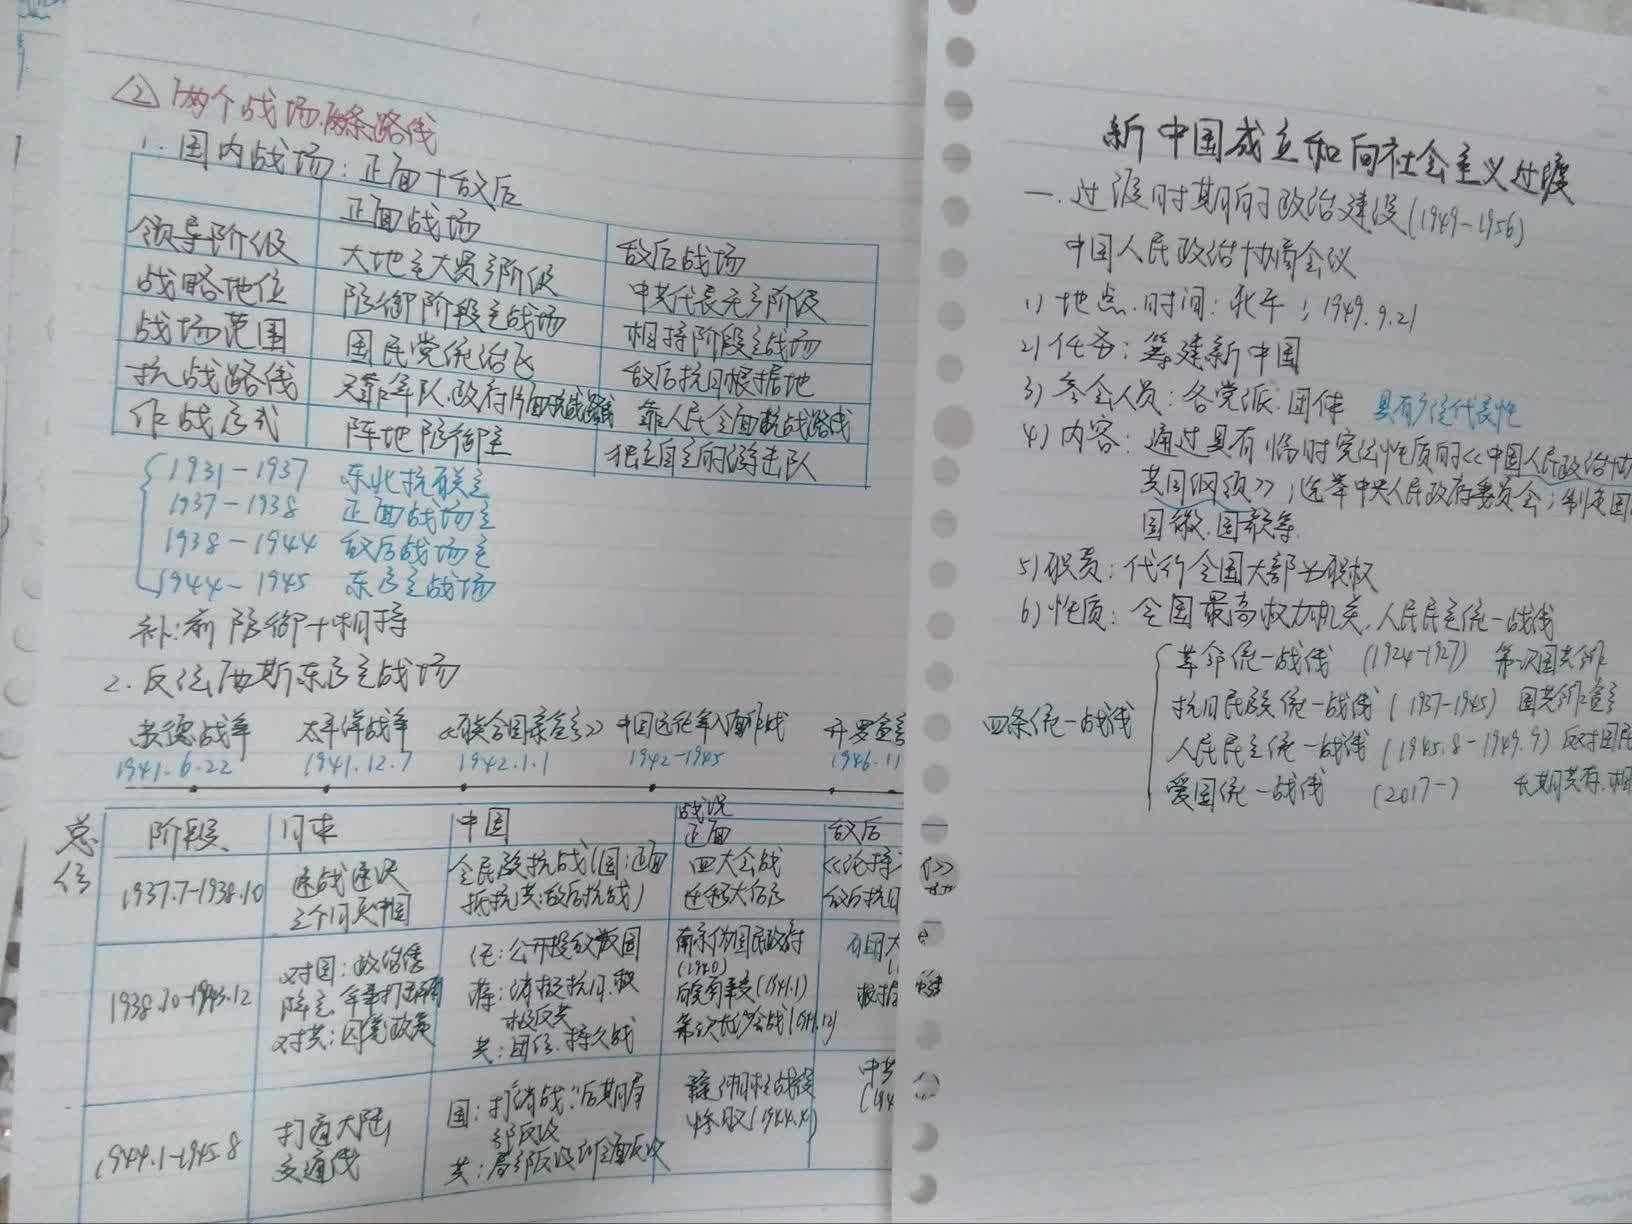 ② 两个战场、两条路线
1. 国内战场：正面+敌后
正面战场 敌后战场
领导阶级 大地主大资产阶级 中共代表无产阶级
战略地位 防御阶段主战场 相持阶段主战场
战场范围 国民党统治区 敌后抗日根据地
抗战路线 只靠军队、政府片面抗战路线 靠人民全面抗战路线
作战方式 阵地防御主 独立自主的游击队
1931-1937 东北抗联主
1937-1938 正面战场主
1938-1944 敌后战场主
1944-1945 东方主战场
补：前防御+相持
2. 反法西斯东方主战场
苏德战争 太平洋战争 《联合国家宣言》 中国远征军入缅作战 开罗宣言
1941.6.22 1941.12.7 1942.1.1 1942-1945 1946.11
总结
阶段 日本 中国 战况
正面 敌后
1937.7-1938.10 速战速决
三个月灭中国
全民族抗战(国：正面
抵抗 共：敌后抗战)
四大会战
迁移大后方
《论持
敌后抗日
1938.10-1943.12 对国：政治诱
降主，军事打击辅
对共：囚笼政策
汪：公开投敌叛国
蒋：消极抗日，积
极反共
共：团结、持久战
南京伪国民政府
(1940)
皖南事变(1941.1)
第三次长沙会战(1941.12)
百团大
根据
1944.1-1945.8 打通大陆
交通线
国：打消战，后期局
部反攻
共：局部反攻到全面反攻
豫湘桂战役
惨败(1944.4)
中共
(194
新中国成立和向社会主义过渡
一. 过渡时期的政治建设(1949-1956)
中国人民政治协商会议
1) 地点、时间：北平；1949.9.21
2) 任务：筹建新中国
3) 参会人员：各党派、团体 具有广泛代表性
4) 内容：通过具有临时宪法性质的《中国人民政治协
共同纲领》；选举中央人民政府委员会；制定国
国徽、国歌等
5) 职责：代行全国人大部分职权
6) 性质：全国最高权力机关、人民民主统一战线
四条统一战线
革命统一战线 (1924-1927) 第一次国共合作
抗日民族统一战线 (1937-1945) 国共合作宣言
人民民主统一战线 (1945.8-1949.9) 反对国民
爱国统一战线 (2017-) 长期共存、相